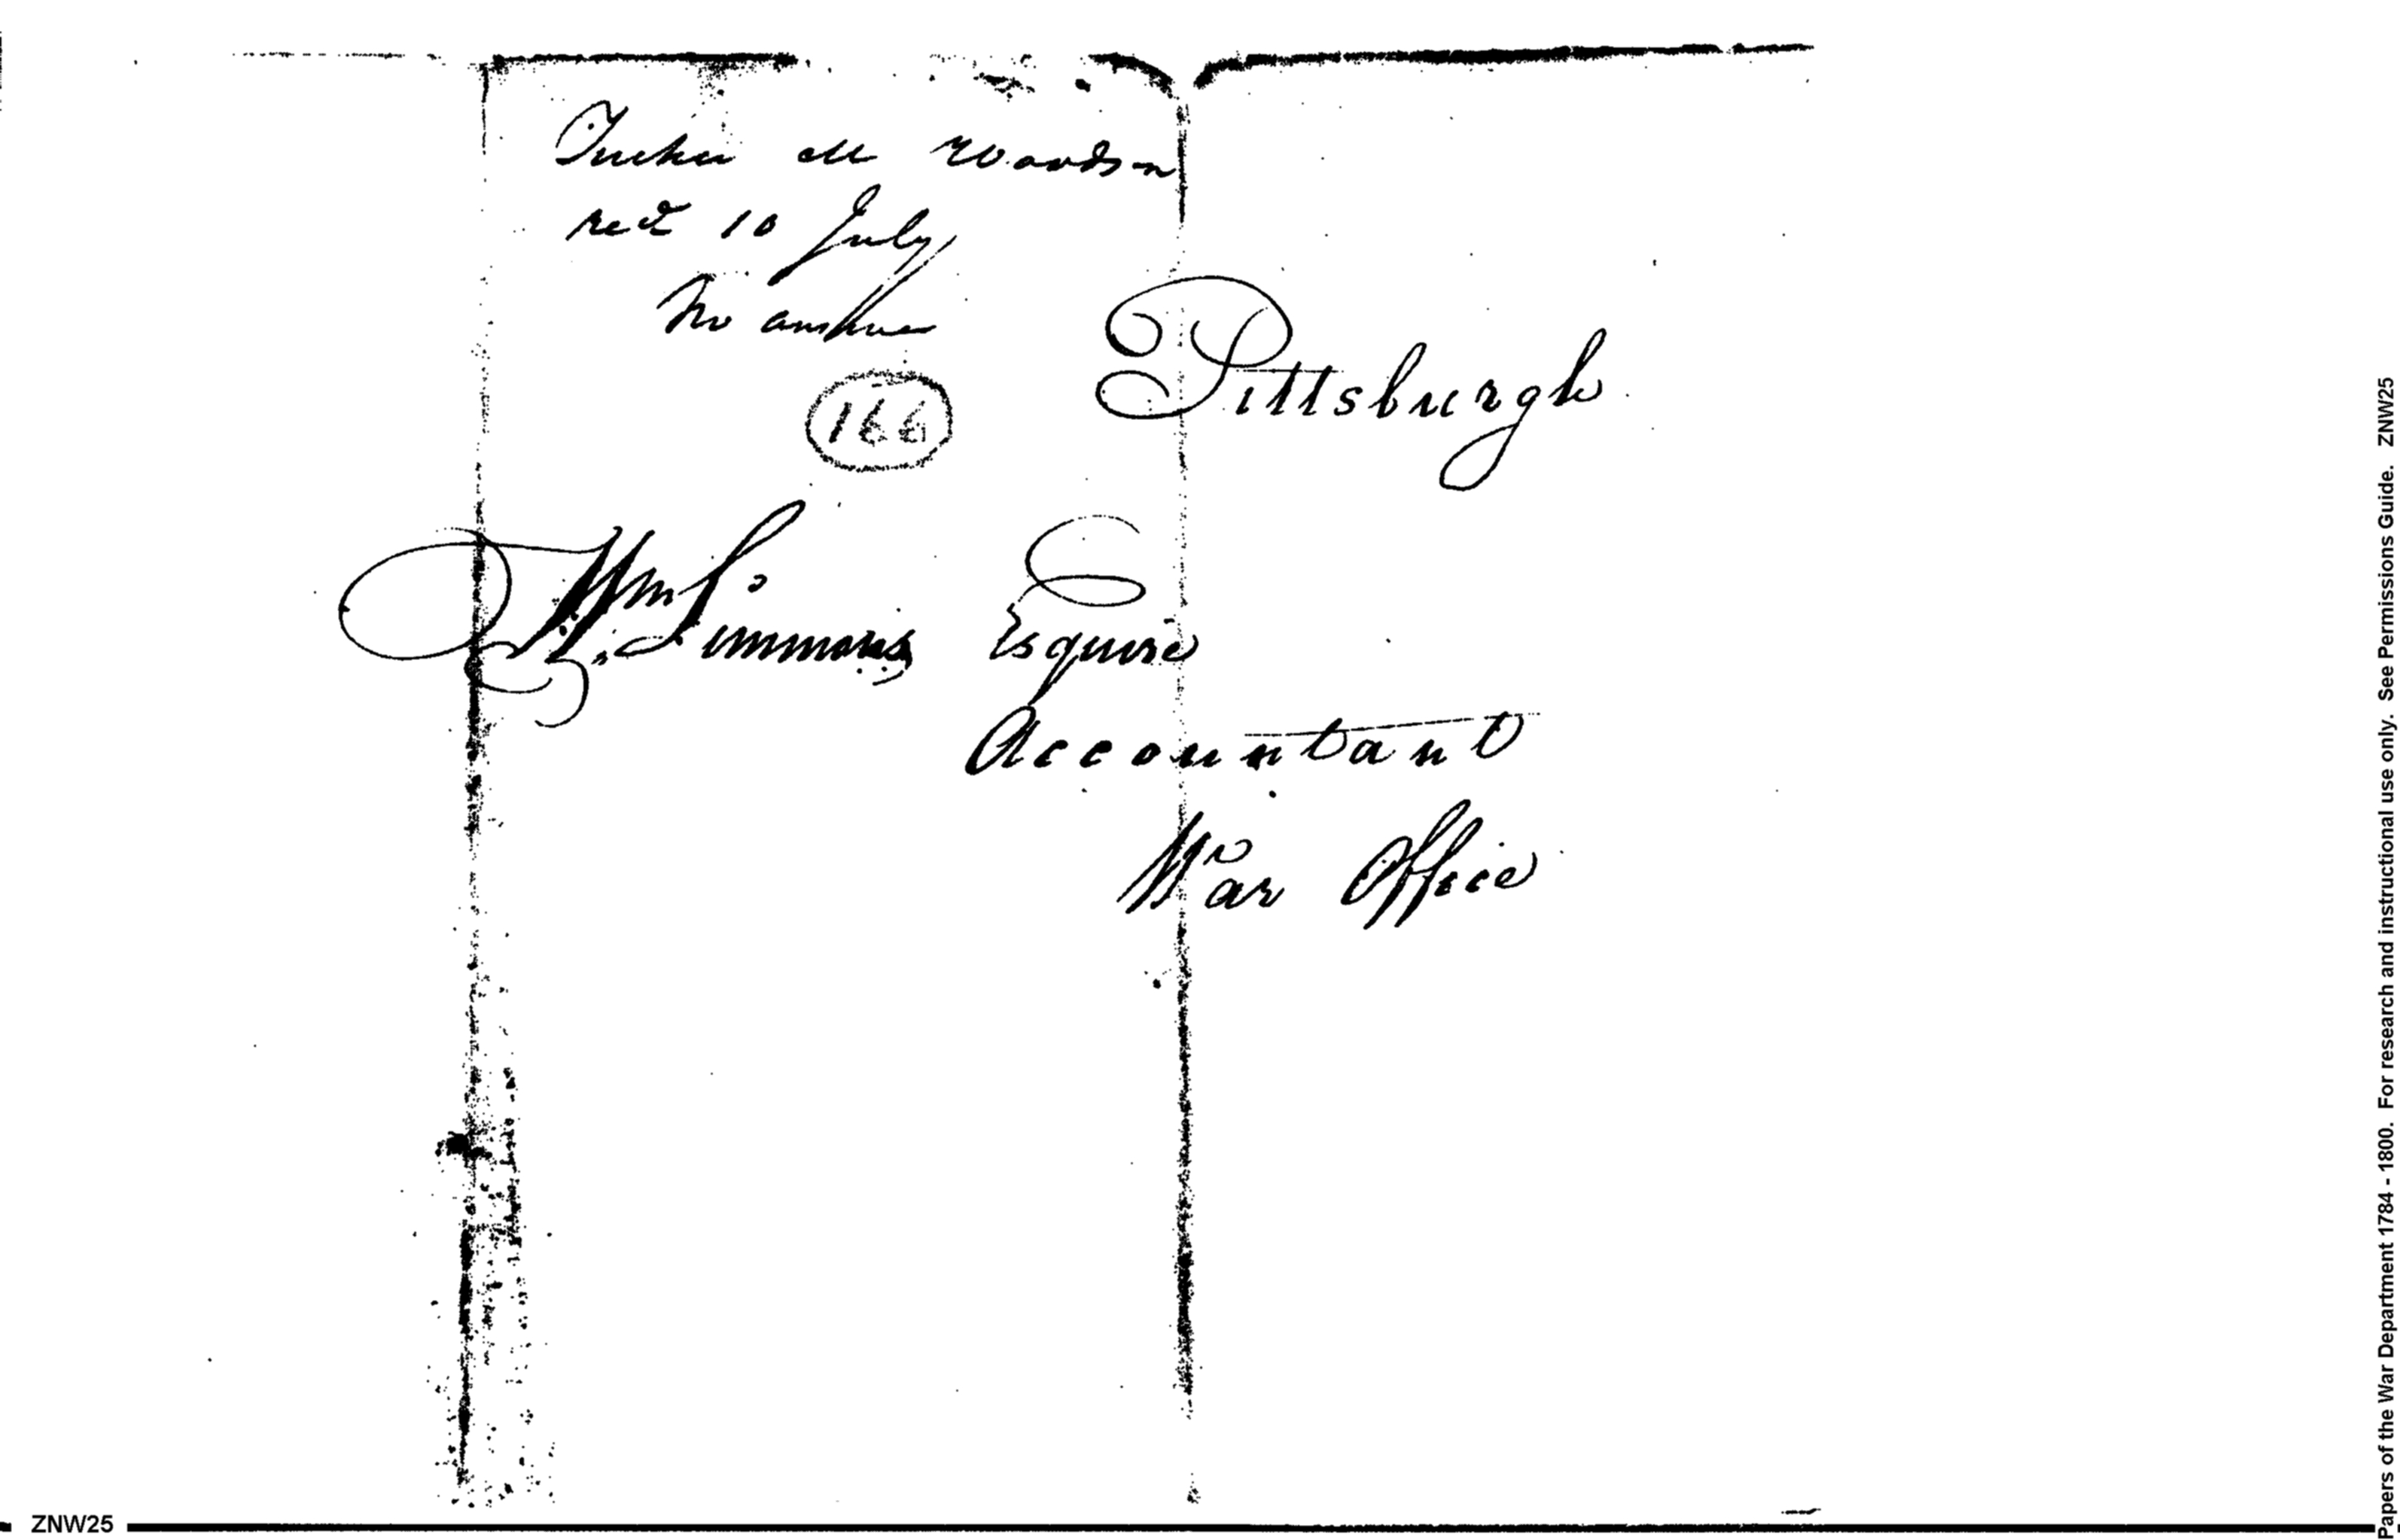 Tucker M Woodson
recd 10 July
No answer
166
Pittsburgh
Wm Simmons, Esquire
Accountant
War Office
ZNW25
Papers of the War Department 1784 - 1800. For research and instructional use only. See Permissions Guide. ZNW25